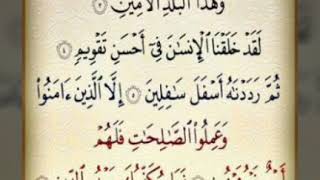 وَهَٰذَا ٱلۡبَلَدِ ٱلۡأَمِينِ ٣
لَقَدۡ خَلَقۡنَا ٱلۡإِنسَٰنَ فِيٓ أَحۡسَنِ تَقۡوِيمٖ ٤
ثُمَّ رَدَدۡنَٰهُ أَسۡفَلَ سَٰفِلِينَ ٥ إِلَّا ٱلَّذِينَ ءَامَنُواْ
وَعَمِلُواْ ٱلصَّٰلِحَٰتِ فَلَهُمۡ